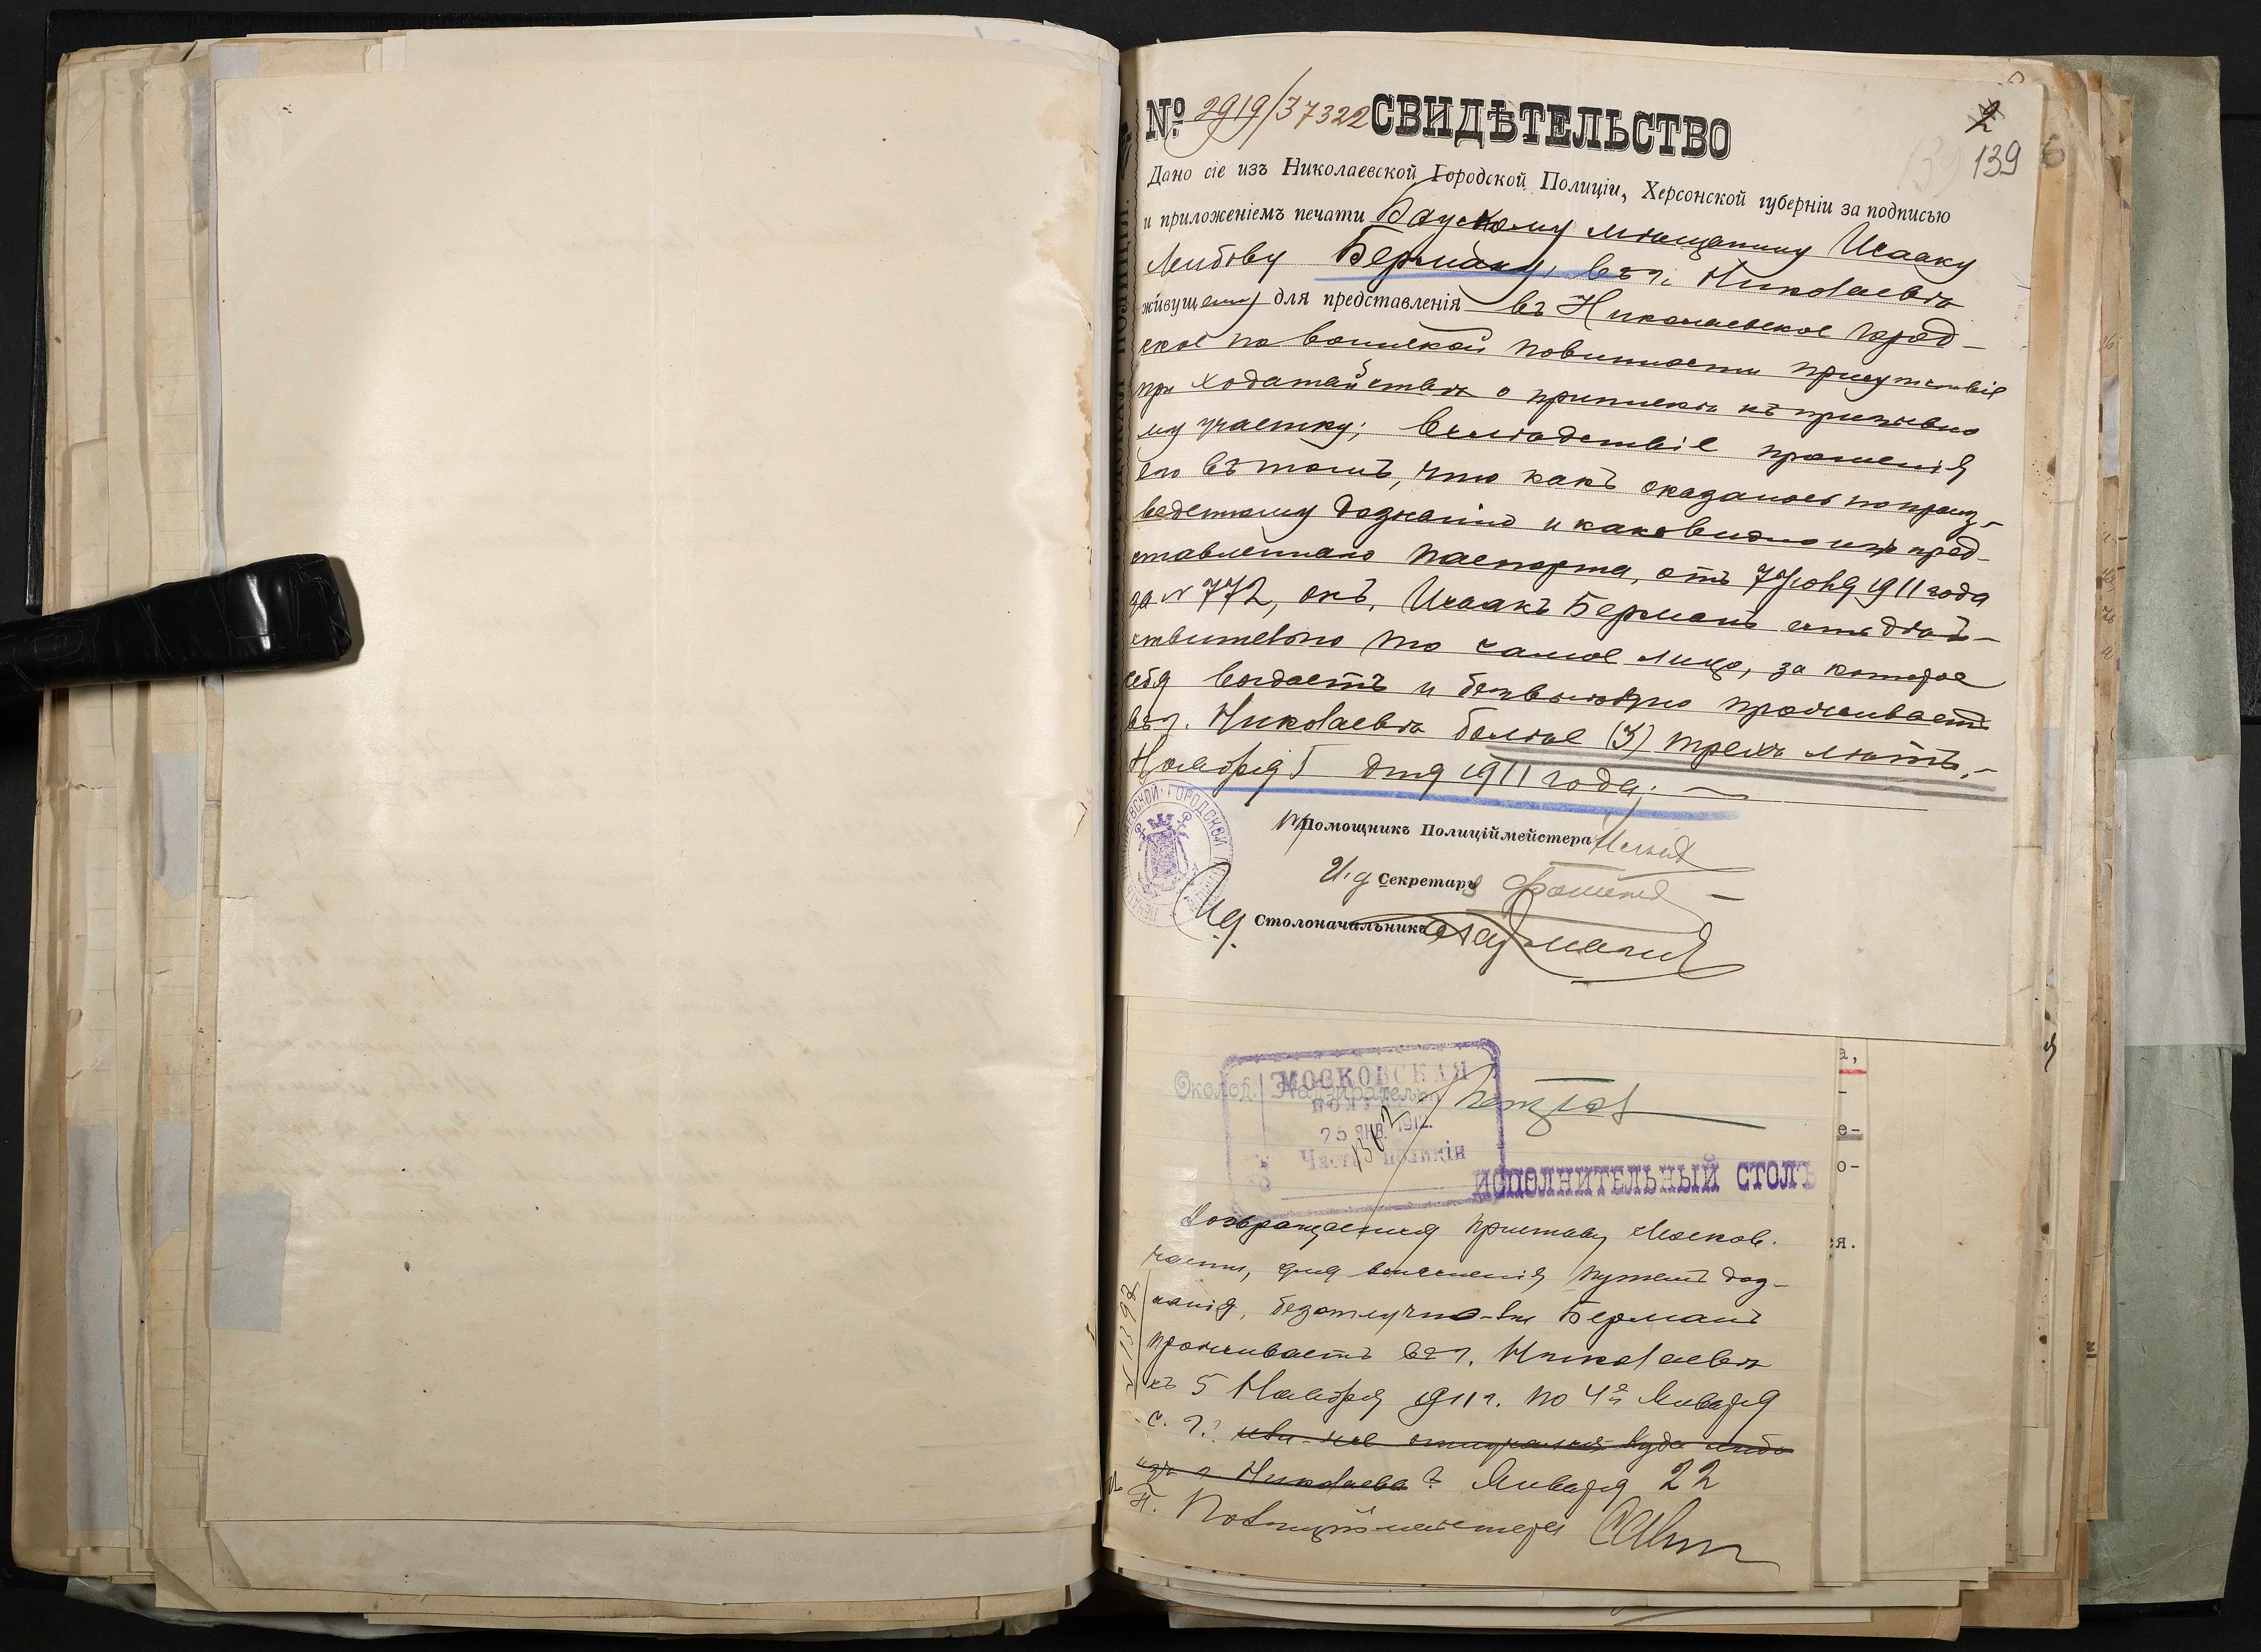 № 2919/37322 СВИДѢТЕЛЬСТВО
2
139
Дано сіе изъ Николаевской Городской Полиціи, Херсонской губерніи за подписью
и приложеніемъ печати Баускому мѣщанину Исааку
Лейбову Берману, въ г. Николаевѣ
живущему для представленія въ Николаевское город-
ское по воинской повинности присутствіе
при ходатайствѣ о припискѣ къ призывно
му участку; вслѣдствіе прошенія
его въ томъ, что какъ оказалось по произ-
веденному дознанію и какъ видно изъ пред-
ставленнаго паспорта, отъ 7 Іюня 1911 года
за № 772, онъ, Исаакъ Берманъ есть дѣй-
ствительно то самое лицо, за которое
себя выдаетъ и безвыѣздно проживаетъ
въ г. Николаевѣ болѣе (3) трехъ лѣтъ,-
Ноября 5 дня 1911 года;
Помощникъ Полиціймейстера
И.д Секретаря
И.д. Столоначальникъ
Околод. Надзиратель
МОСКОВСКАЯ
25 ЯНВ. 1912.
Часть Полиціи
ИСПОЛНИТЕЛЬНЫЙ СТОЛЪ
Возвращается приставу Москов.
части, для выясненія путемъ доз-
нанія, безотлучно-ли Берманъ
проживаетъ въ г. Николаевѣ
съ 5 Ноября 1911 г. по 4е Января
с. г.? или-же отлучался куда либо
изъ г. Николаева? Января 22
П. Полиціймейстера